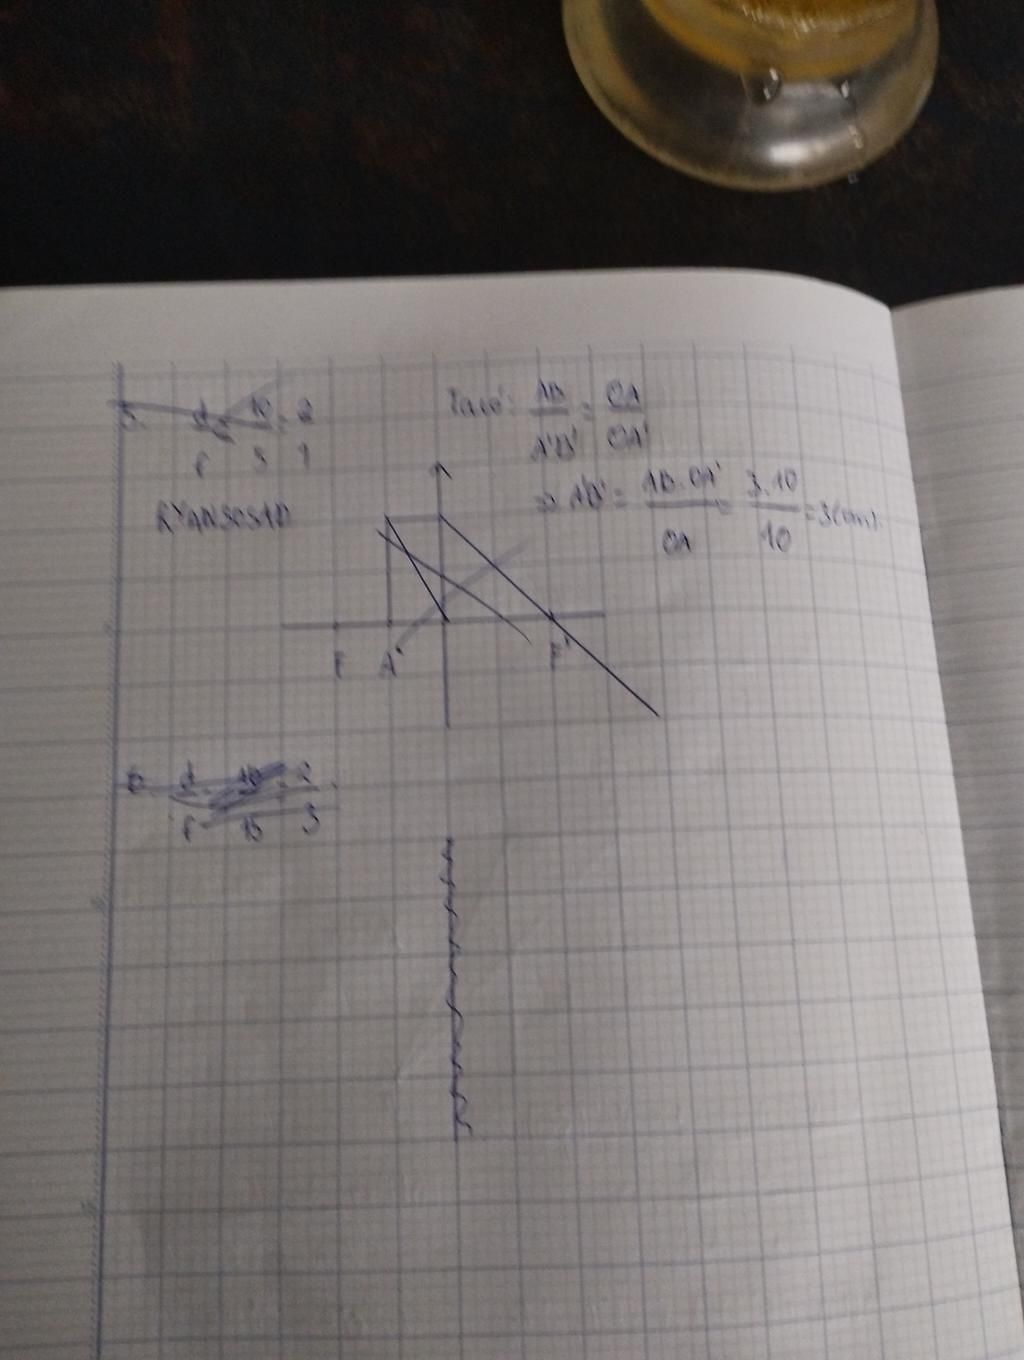 5. d/f = 10/5 = 2/1
Ta có: AB/A'B' = OA/OA'
⇒ A'B' = AB.OA'/OA = 3.10/10 = 3(cm).
F A' F'
6. d/f = 10/15 = 2/3